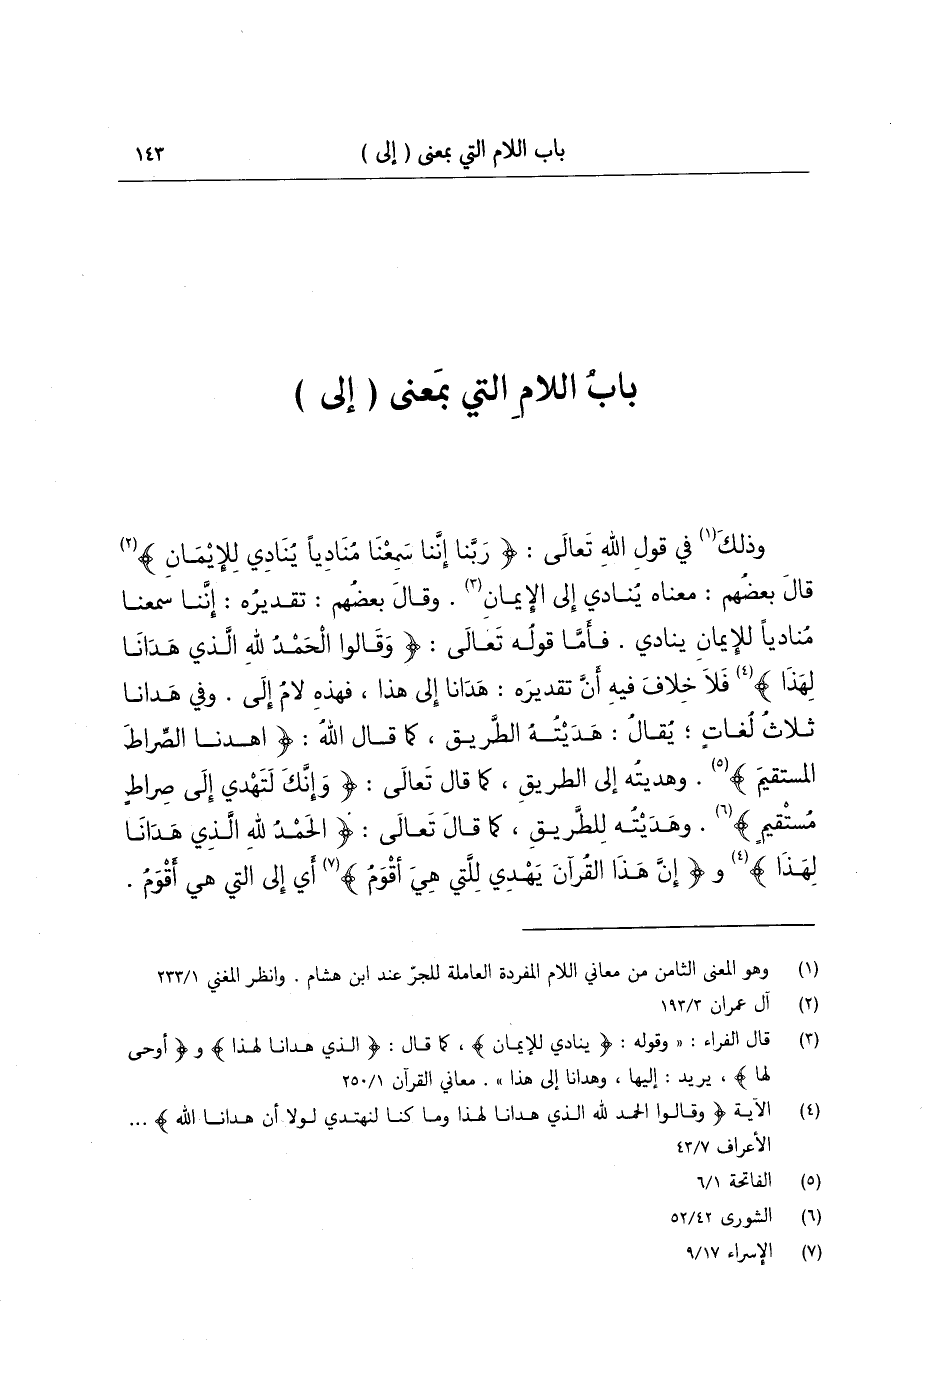 باب اللام التي بمعنى ( إلى ) ١٤٣
بابُ اللامِ التي بمَعنى ( إلى )
وذلكَ(١) في قولِ اللهِ تَعالَى : ﴿ رَبَّنا إنَّنا سَمِعْنَا مُنَادِياً يُنَادِي لِلإيْمَـانِ ﴾(٢)
قالَ بعضُهم : معناه يُنـادي إلى الإيمـانِ(٣) . وقـالَ بعضُهم : تقـديرُه : إنَّنـا سمعنـا
مُنادياً للإيمانِ ينادي . فـأمَّا قولُـه تعـالَى : ﴿ وَقَـالوا الْحَمْـدُ للهِ الَّـذي هَـدَانَـا
لِهَذَا ﴾(٤) فَلاَ خلافَ فيهِ أنَّ تقديرَه : هَدَانا إلى هذا ، فهذهِ لامُ إلَى . وفي هَـدانـا
ثـلاثُ لُغـاتٍ ؛ يُقـالُ : هَـدَيْتُـهُ الطَّريـق ، كما قـال اللهُ : ﴿ اهـدنـا الصِّراطَ
المستقيمَ ﴾(٥) . وهديتُه إلى الطريقِ ، كما قال تَعالَى : ﴿ وَإنَّكَ لَتَهْدي إلَى صِراطٍ
مُسْتْقيمٍ ﴾(٦) . وهَـدَيْتُـه لِلطَّريـقِ ، كما قـالَ تَعـالَى : ﴿ الحَمْـدُ للهِ الَّـذي هَـدَانَـا
لِهَـذَا ﴾(٤) و ﴿ إنَّ هَـذَا القُرآنَ يَهْـدِي لِلَّتي هِيَ أَقْوَمُ ﴾(٧) أي إلى التي هي أَقْوَمُ .
(١) وهو المعنى الثامن من معاني اللام المفردة العاملة للجرّ عند ابن هشام . وانظر المغني ٢٣٣/١
(٢) آل عمران ١٩٣/٣
(٣) قال الفراء : « وقوله : ﴿ ينادي للإيمـان ﴾ ، كما قـال : ﴿ الـذي هـدانـا لهـذا ﴾ و ﴿ أوحى
لها ﴾ ، يريد : إليها ، وهدانا إلى هذا » . معاني القرآن ٢٥٠/١
(٤) الآيـة ﴿ وقـالـوا الحمـد لله الـذي هـدانـا لهـذا ومـا كنـا لنهتـدي لـولا أن هـدانـا الله ﴾ ...
الأعراف ٤٣/٧
(٥) الفاتحة ٦/١
(٦) الشورى ٥٢/٤٢
(٧) الإسراء ٩/١٧